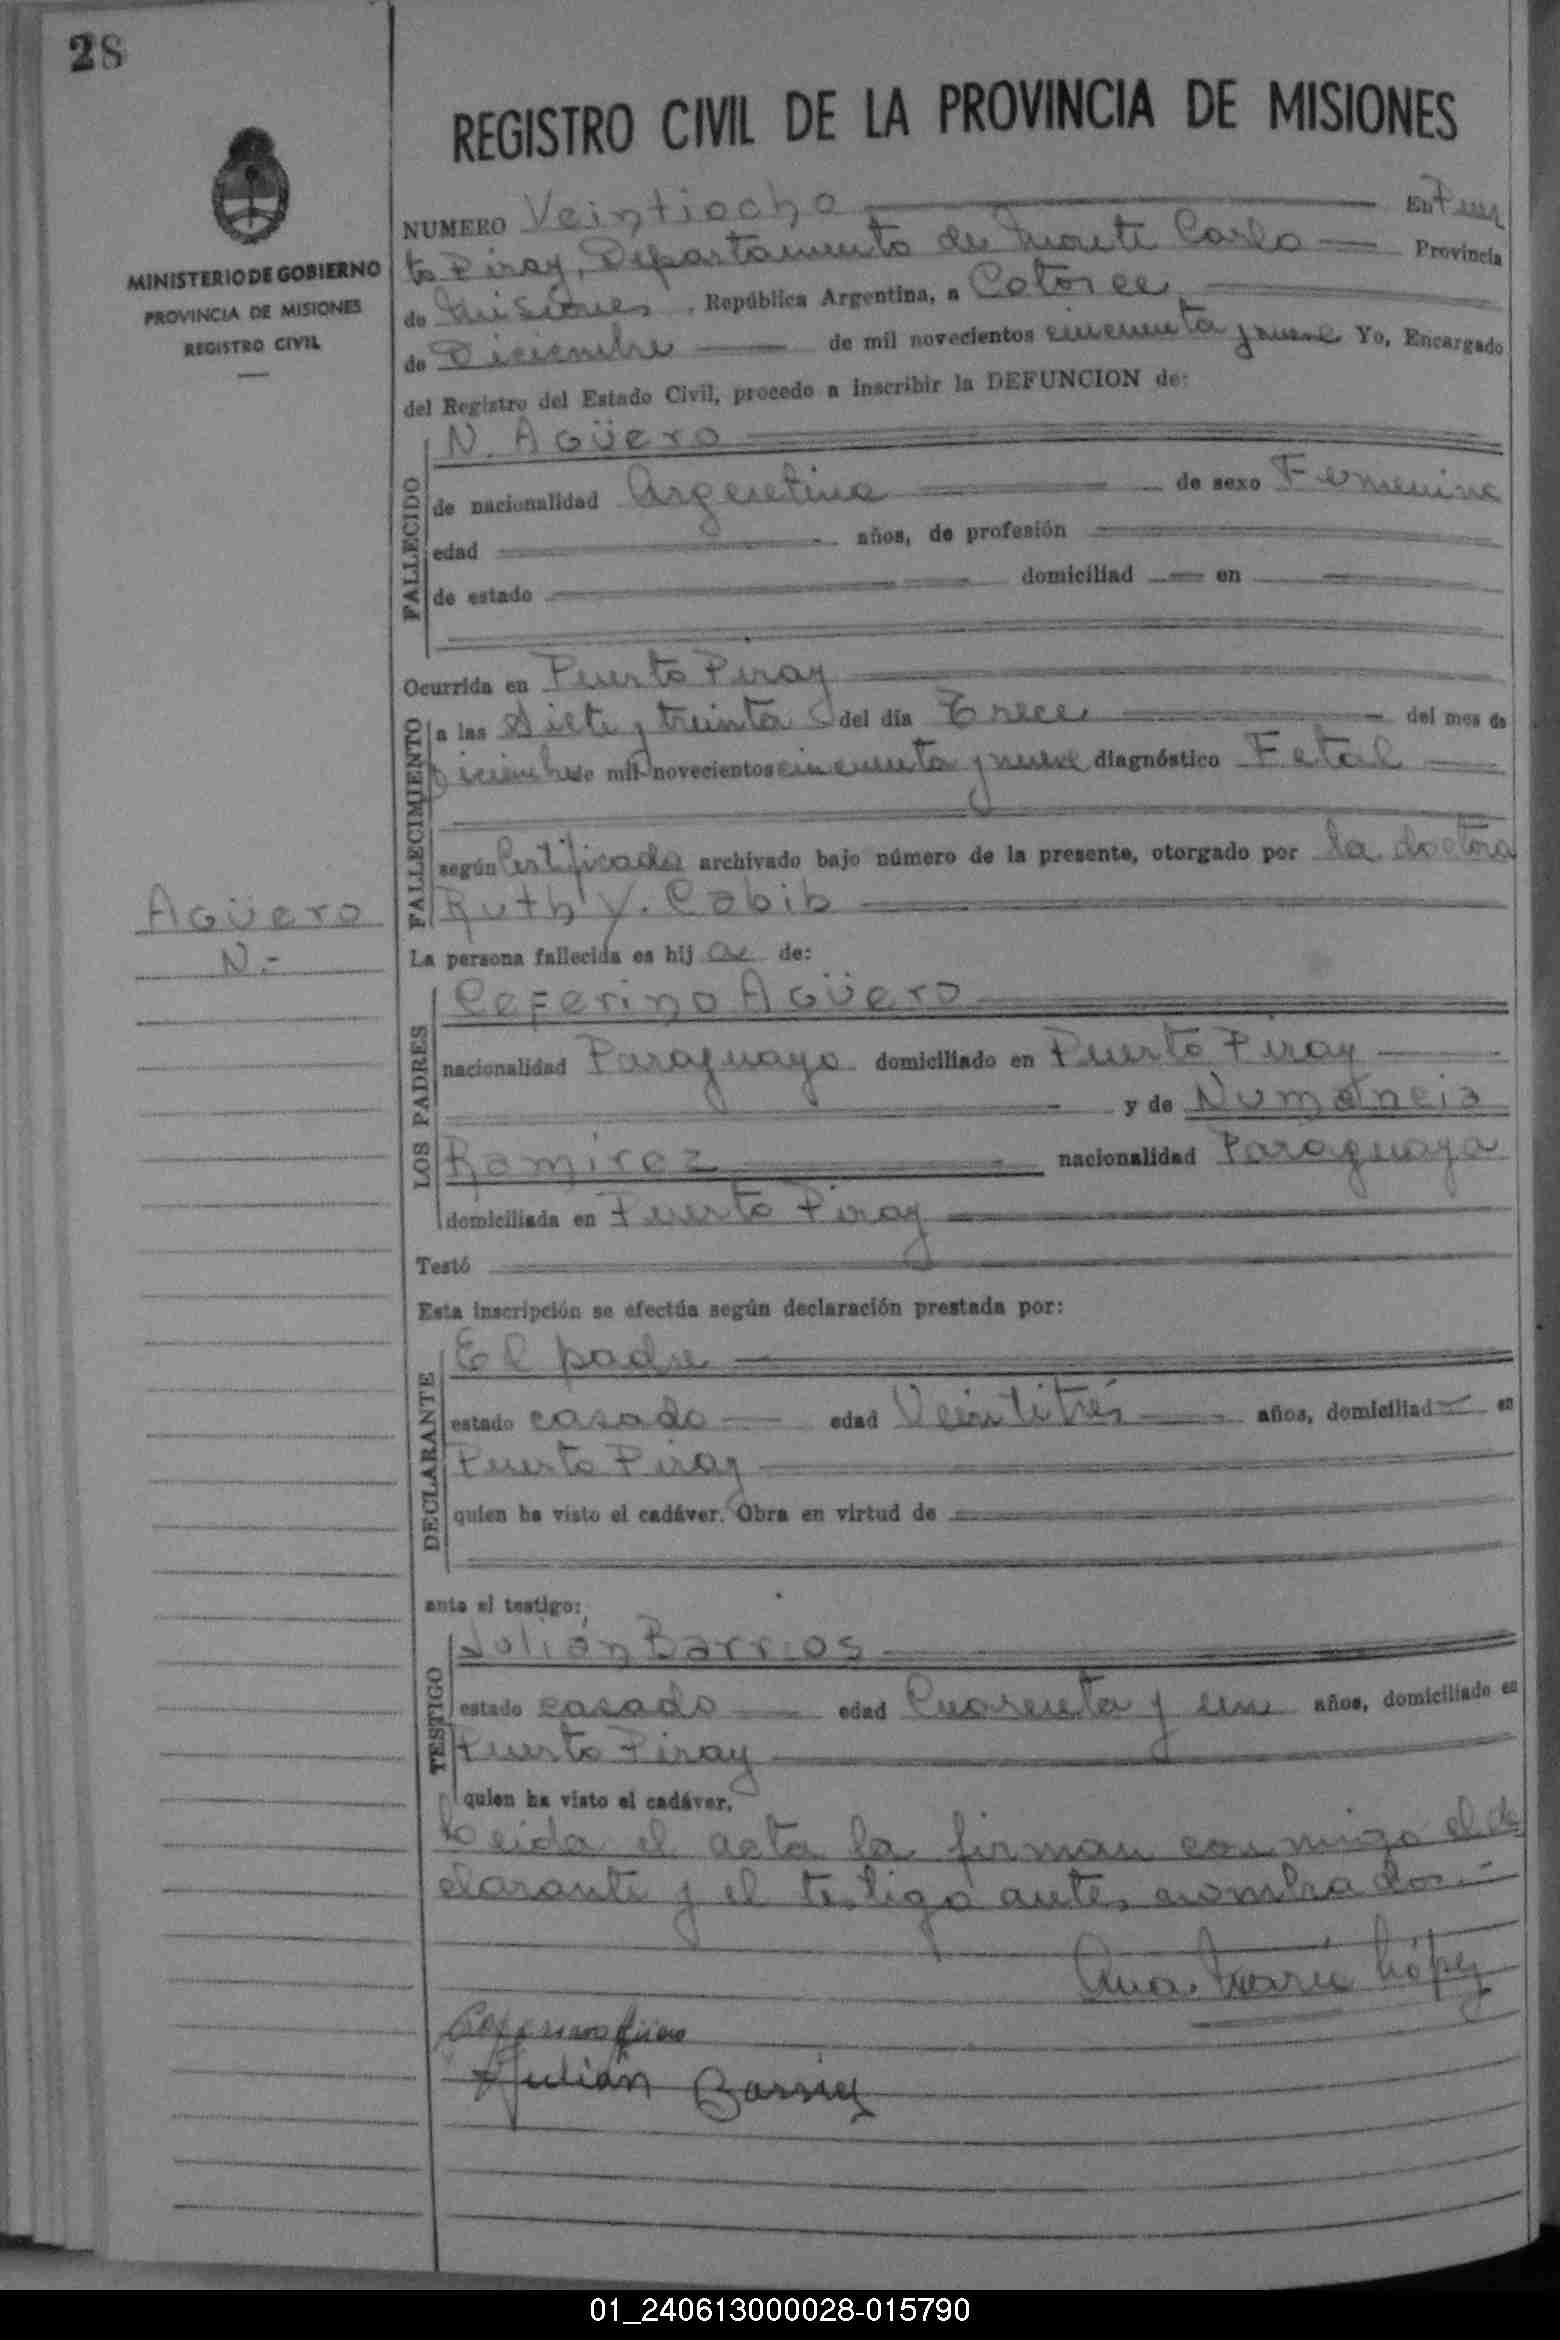 28
REGISTRO CIVIL DE LA PROVINCIA DE MISIONES
MINISTERIO DE GOBIERNO
PROVINCIA DE MISIONES
REGISTRO CIVIL
NUMERO Veintiocho En Puer
to Piray, Departamento de Monte Carlo Provincia
de Misiones, República Argentina, a Catorce
de Diciembre de mil novecientos cincuenta y nueve Yo, Encargado
del Registro del Estado Civil, procedo a inscribir la DEFUNCION de:
FALLECIDO
N. Agüero
de nacionalidad Argentina de sexo Femenino
edad años, de profesión
de estado domiciliad en
Ocurrida en Puerto Piray
FALLECIMIENTO
a las Siete y treinta del día Trece del mes de
Diciembre mil novecientos cincuenta y nueve diagnóstico Fetal
según Certificado archivado bajo número de la presente, otorgado por la doctora
Ruth Y. Cabib
Agüero
N.-
La persona fallecida es hij a de:
LOS PADRES
Ceferino Agüero
nacionalidad Paraguayo domiciliado en Puerto Piray
y de Numancia
Ramirez nacionalidad Paraguaya
domiciliada en Puerto Piray
Testó
Esta inscripción se efectúa según declaración prestada por:
DECLARANTE
El padre
estado casado edad Veintitrés años, domiciliad en
Puerto Piray
quien ha visto el cadáver. Obra en virtud de
ante el testigo:
TESTIGO
Julián Barrios
estado casado edad Cuarenta y un años, domiciliado en
Puerto Piray
quien ha visto el cadáver.
Leida el acta la firman conmigo el de
clarante y el testigo antes nombrados.-
Ana María López
Ceferino
Julián Barrios
01_240613000028-015790